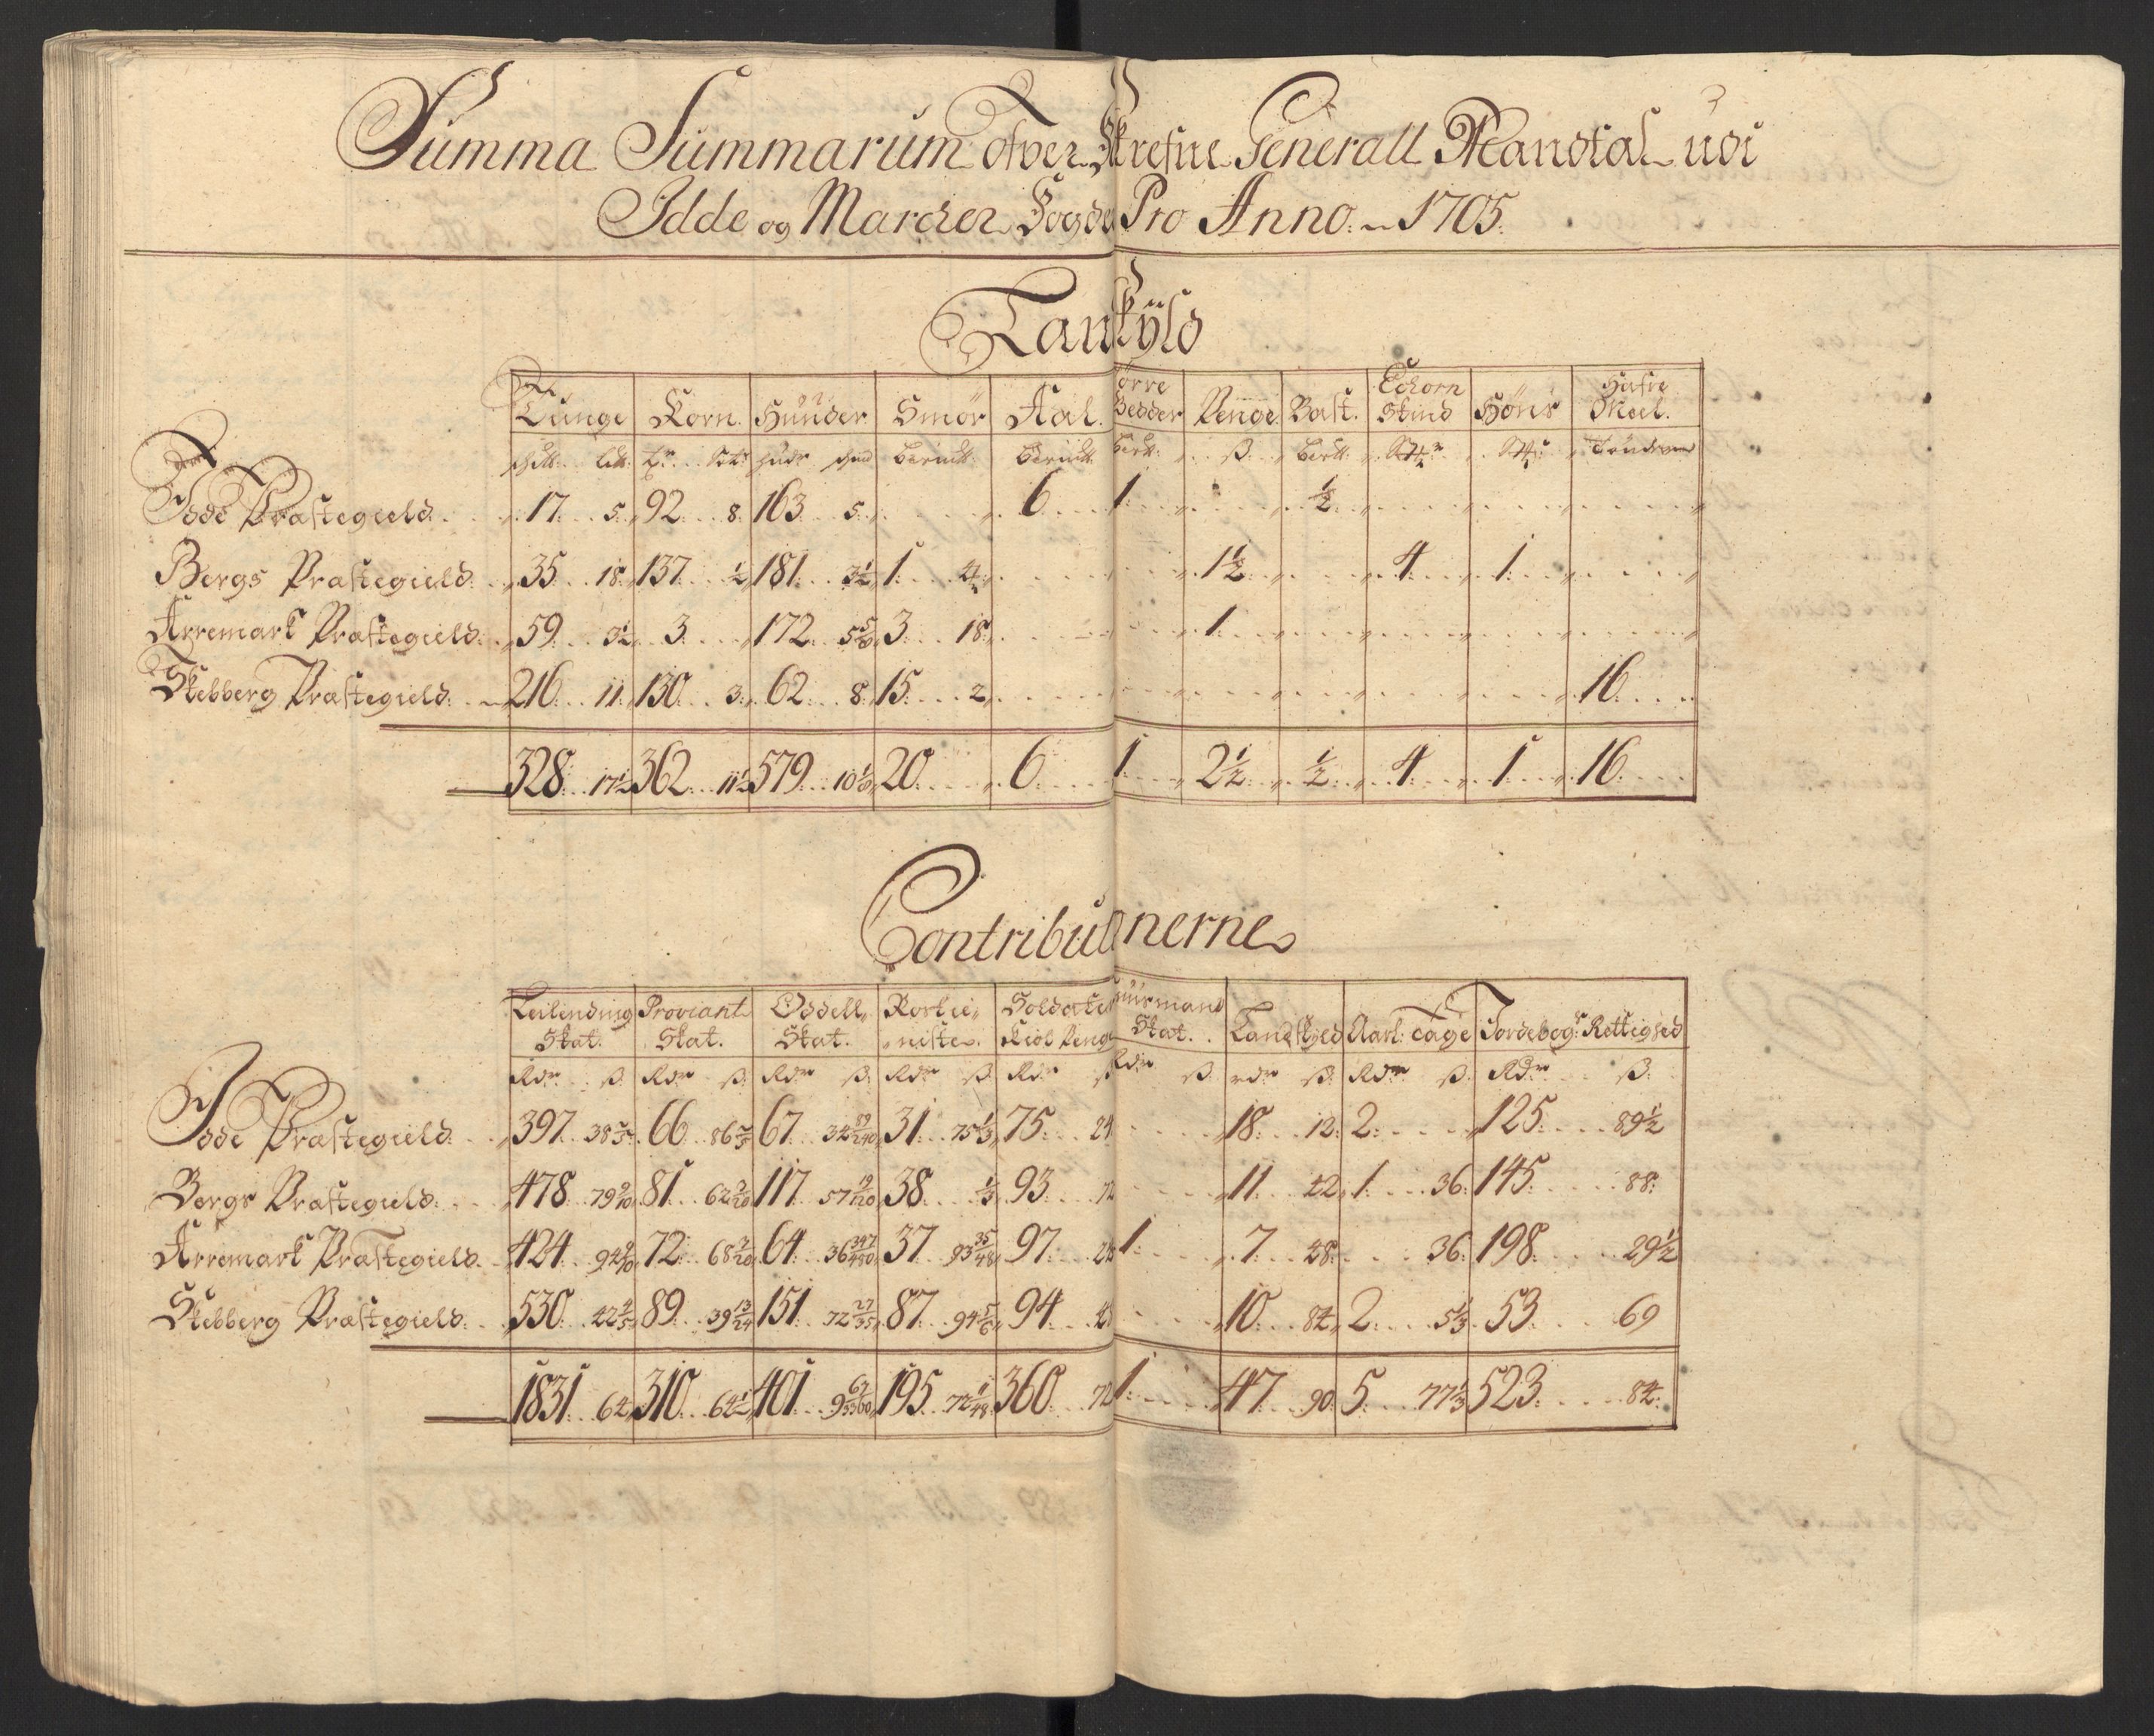 Summa Summarum ofver Skrefne Generall Mandtal udi
Idde og Marcker Fogde Pro Anno 1705.
Lanskÿld
Tunge Korn. Hunder Smör Aal. örre Gedder Penge Bast. Eckorn Skind Höns Hafre Meel.
Idde Præstegield. 17. 5. 92. 8. 163. 5. 6. 1. ½
Bergs Præstegield. 35. 18. 137. ½ 181. 3½ 1. 4. 1½ 4. 1.
Arremark Præstegield. 59. 3½ 3. 172. 5 3. 18. 1.
Skebberg Præstegield. 216. 11. 130. 3. 62. 8. 15. 2. 16.
328. 17½ 362. 11½ 579. 10 20. 6. 1. 2½ ½ 4. 1. 16.
Contribut nerne
Leilending Skat. Proviant Skat. Oddell Skat. Rostie niste. Soldater Kiol Peng Skat. Landskyld Aarl: Tage Jordebogs Rettighed
Rdr ß Rdr ß Rdr ß Rdr ß Rdr ß Rdr ß rdr ß Rdr ß Rdr ß
Idde Præstegield. 397. 38 66. 86 67. 34 89/240 31. 75⅓ 75. 24 18. 12. 2. 125. 89½
Bergs Præstegield. 478. 79 9/10 81. 62 117. 57 19/120 38. ⅓ 93. 72 11. 42. 1. 36. 145. 88.
Arremark Præstegield. 424. 94 72. 68 7/20 64. 36 347/480 37. 93 35/48 97. 24 1. 7. 48. 36. 198. 29½
Skebberg Præstegield. 530. 42 89. 39 13/24 151. 72 87. 94⅚ 94. 48 10. 84. 2. 5⅓ 53. 69
1831. 64. 310. 64½ 401. 9 195. 72 360. 72 1. 47. 90. 5. 77⅓ 523. 84.